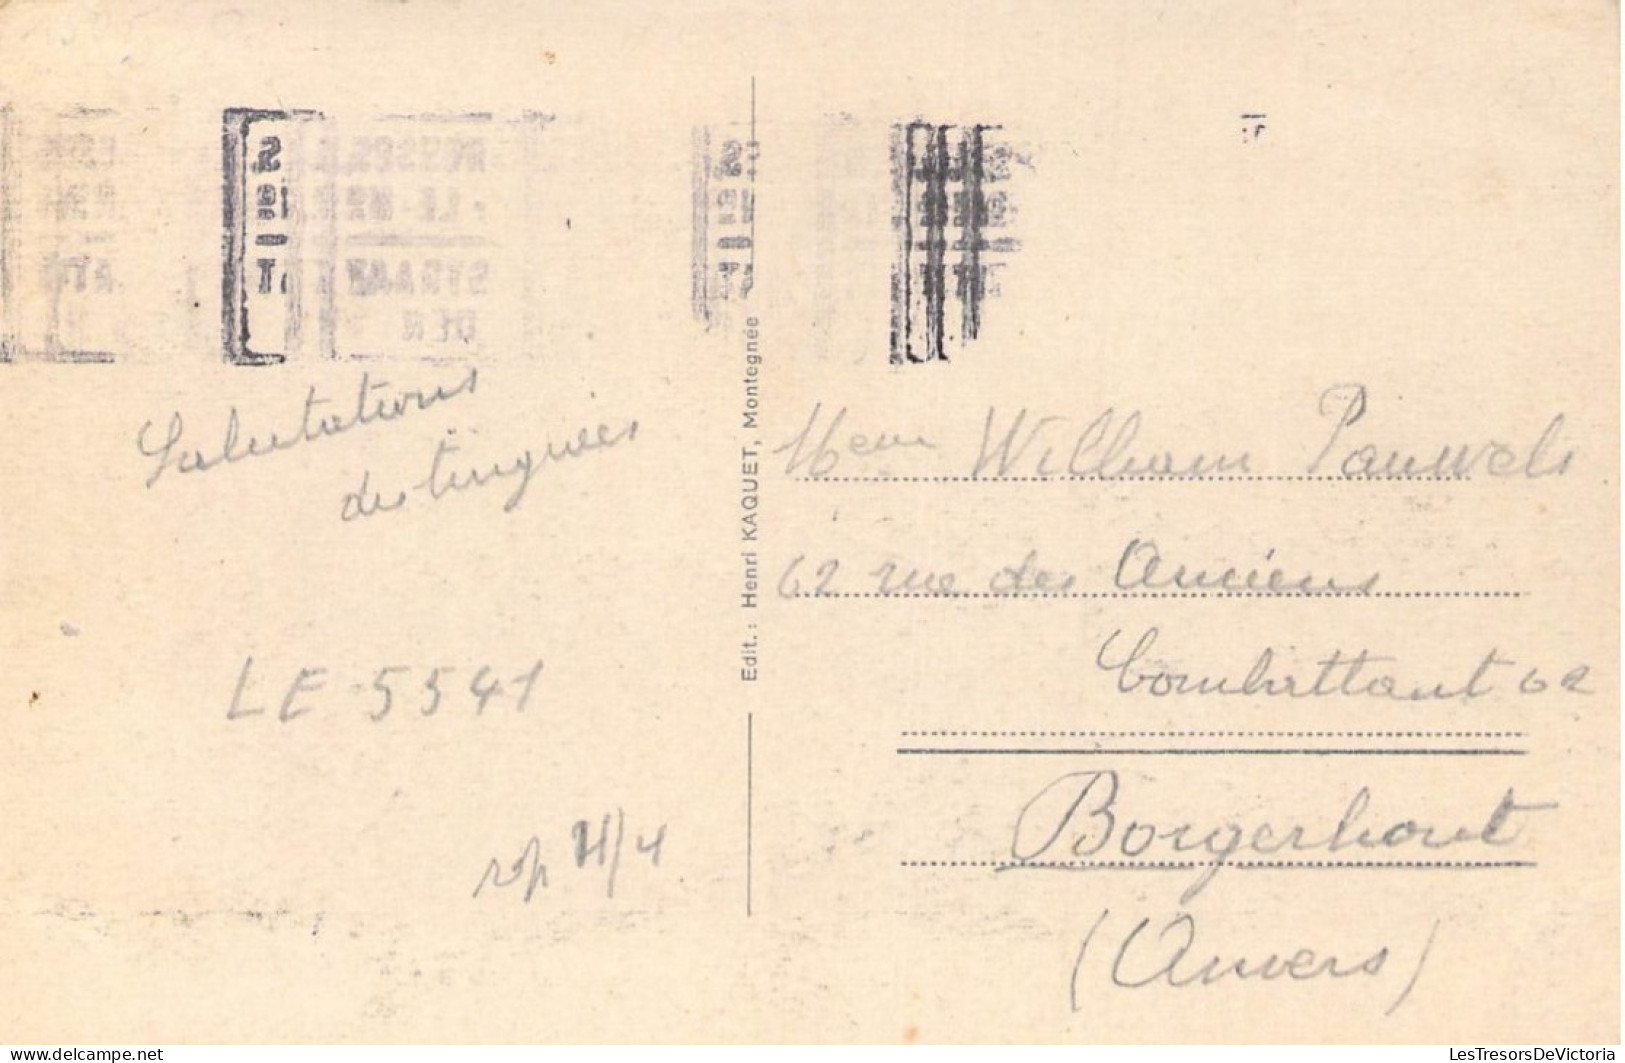 Salutations
distinguées
LE 5541
Edit.: Henri KAQUET, Montegnée
William Pauwels
62 rue des Anciens
Combattant 62
Borgerhout
(Anvers)
LesTresorsDeVictoria